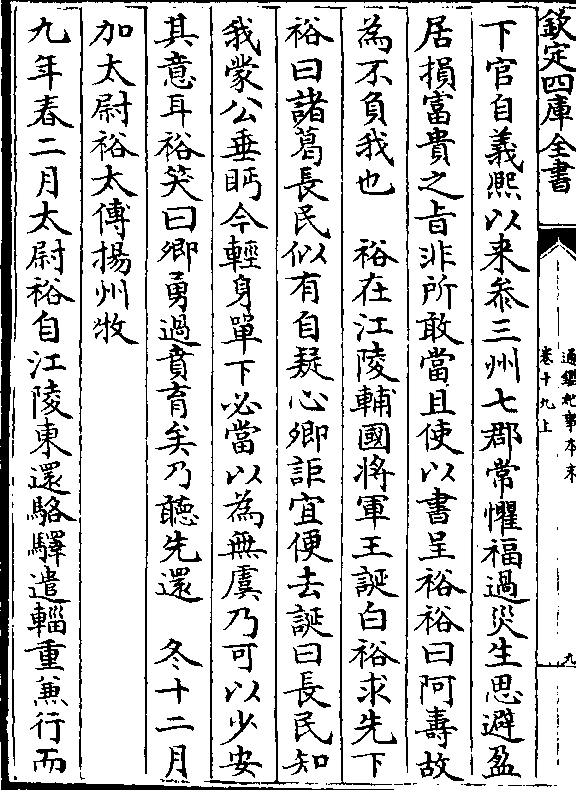 欽定四庫全書
通鑑紀事本末
卷十九上
九
下官自義熙以来叅三州七郡常懼福過災生思避盈
居損富貴之㫖非所敢當且使以書呈裕裕曰阿壽故
為不負我也　裕在江陵輔國將軍王誕白裕求先下
裕曰諸葛長民似有自疑心卿詎宜便去誕曰長民知
我蒙公垂眄今輕身單下必當以為無虞乃可以少安
其意耳裕笑曰卿勇過賁育矣乃聽先還　冬十二月
加太尉裕太傅揚州牧
九年春二月太尉裕自江陵東還駱驛遣輜重兼行而